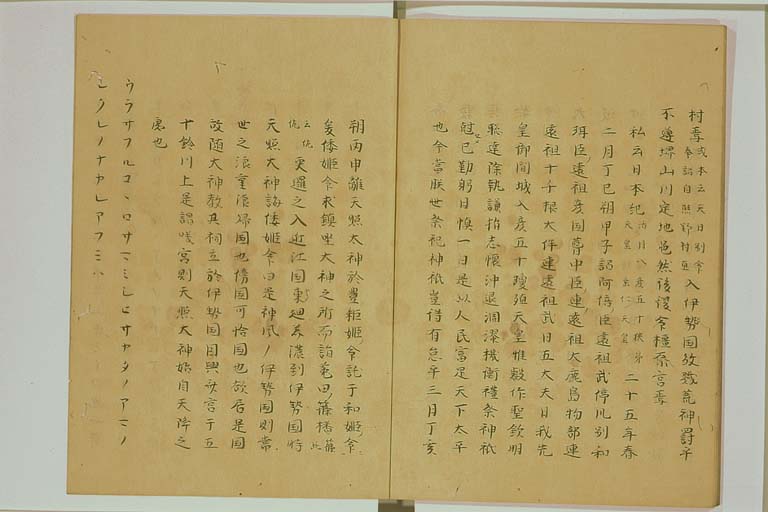 村悪或本云天日別命入伊勢国敀戮荒神罸平
不遵堺山川定地邑然後
私云日本紀 二十五年春
二月丁巳朔甲子詔阿倍臣遠祖武渟川別和
珥臣遠祖彦国葺中臣連遠祖大鹿島物部連
遠祖十千根大伴連遠祖武日五大夫曰我先
皇御間城入彦五十瓊殖天皇惟叡作聖欽明
聡達深執謙損志懐沖退綢繆機衡禮祭神祇
尅己勤躬日慎一日是以人民富足天下太平
也今當朕世祭祀神祇豈得有怠乎三月丁亥
朔丙申離天照太神於豊耜姫命託于和姫命
爰倭姫命求鎮坐大神之所而詣菟田篠幡
更還之入近江国東廻美濃到伊勢国時
天照大神誨倭姫命曰是神風ノ伊勢国則常
世之浪重浪帰国也傍国可怜国也欲居是国
故随大神教其祠立於伊勢国因興斎宮于五
十鈴川上是謂磯宮則天照大神始自天降之
處也
ウラサフルコヽロサマミシヒサカタノアマノ
シクレノナカレアフミハ